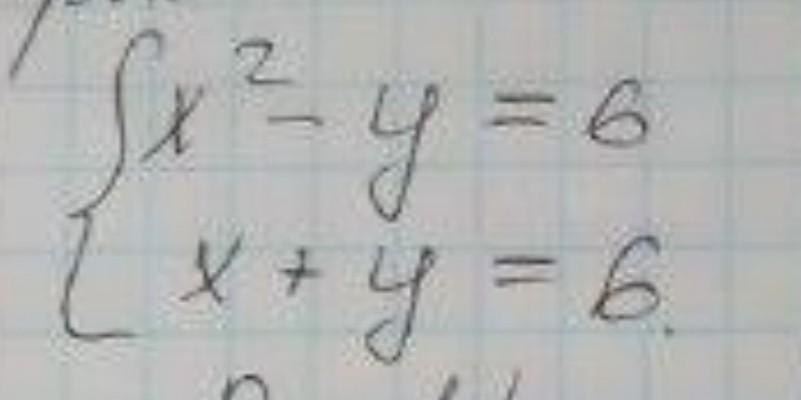 x² - y = 6
x + y = 6.